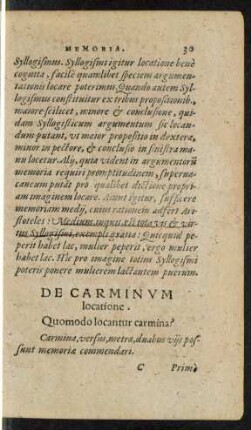 MEMORIA. 30
Syllogismus. Syllogismi igitur locatione benè
cognita, facilè quamlibet speciem argumen-
tationis locare poterimus. Quando autem Syl-
logismus constituitur ex tribus propositionib.
maiore scilicet, minore & conclusione, qui-
dam Syllogisticum argumentum sic locan-
dum putant, vt maior propositio in dextera,
minor in pectore, & conclusio in sinistra ma-
nu locetur. Alij, quia vident in argumentorũ
memoria requiri promptitudinem, superua-
caneum putãt pro qualibet dictione propri-
am imaginem locare. Aiunt igitur, sufficere
memoriam medij, cuius rationem adfert Ari-
stoteles: Medium inquit est tota vis & vir-
tus Syllogismi, exempli gratia: Quicquid pe-
perit habet lac, mulier peperit, ergo mulier
habet lac. Hîc pro imagine totius Syllogismi
poteris ponere mulierem lactantem puerum.
DE CARMINVM
locatione.
Quomodo locantur carmina?
Carmina, versus, metra, duabus vijs pos-
sunt memoriæ commendari.
C Primò